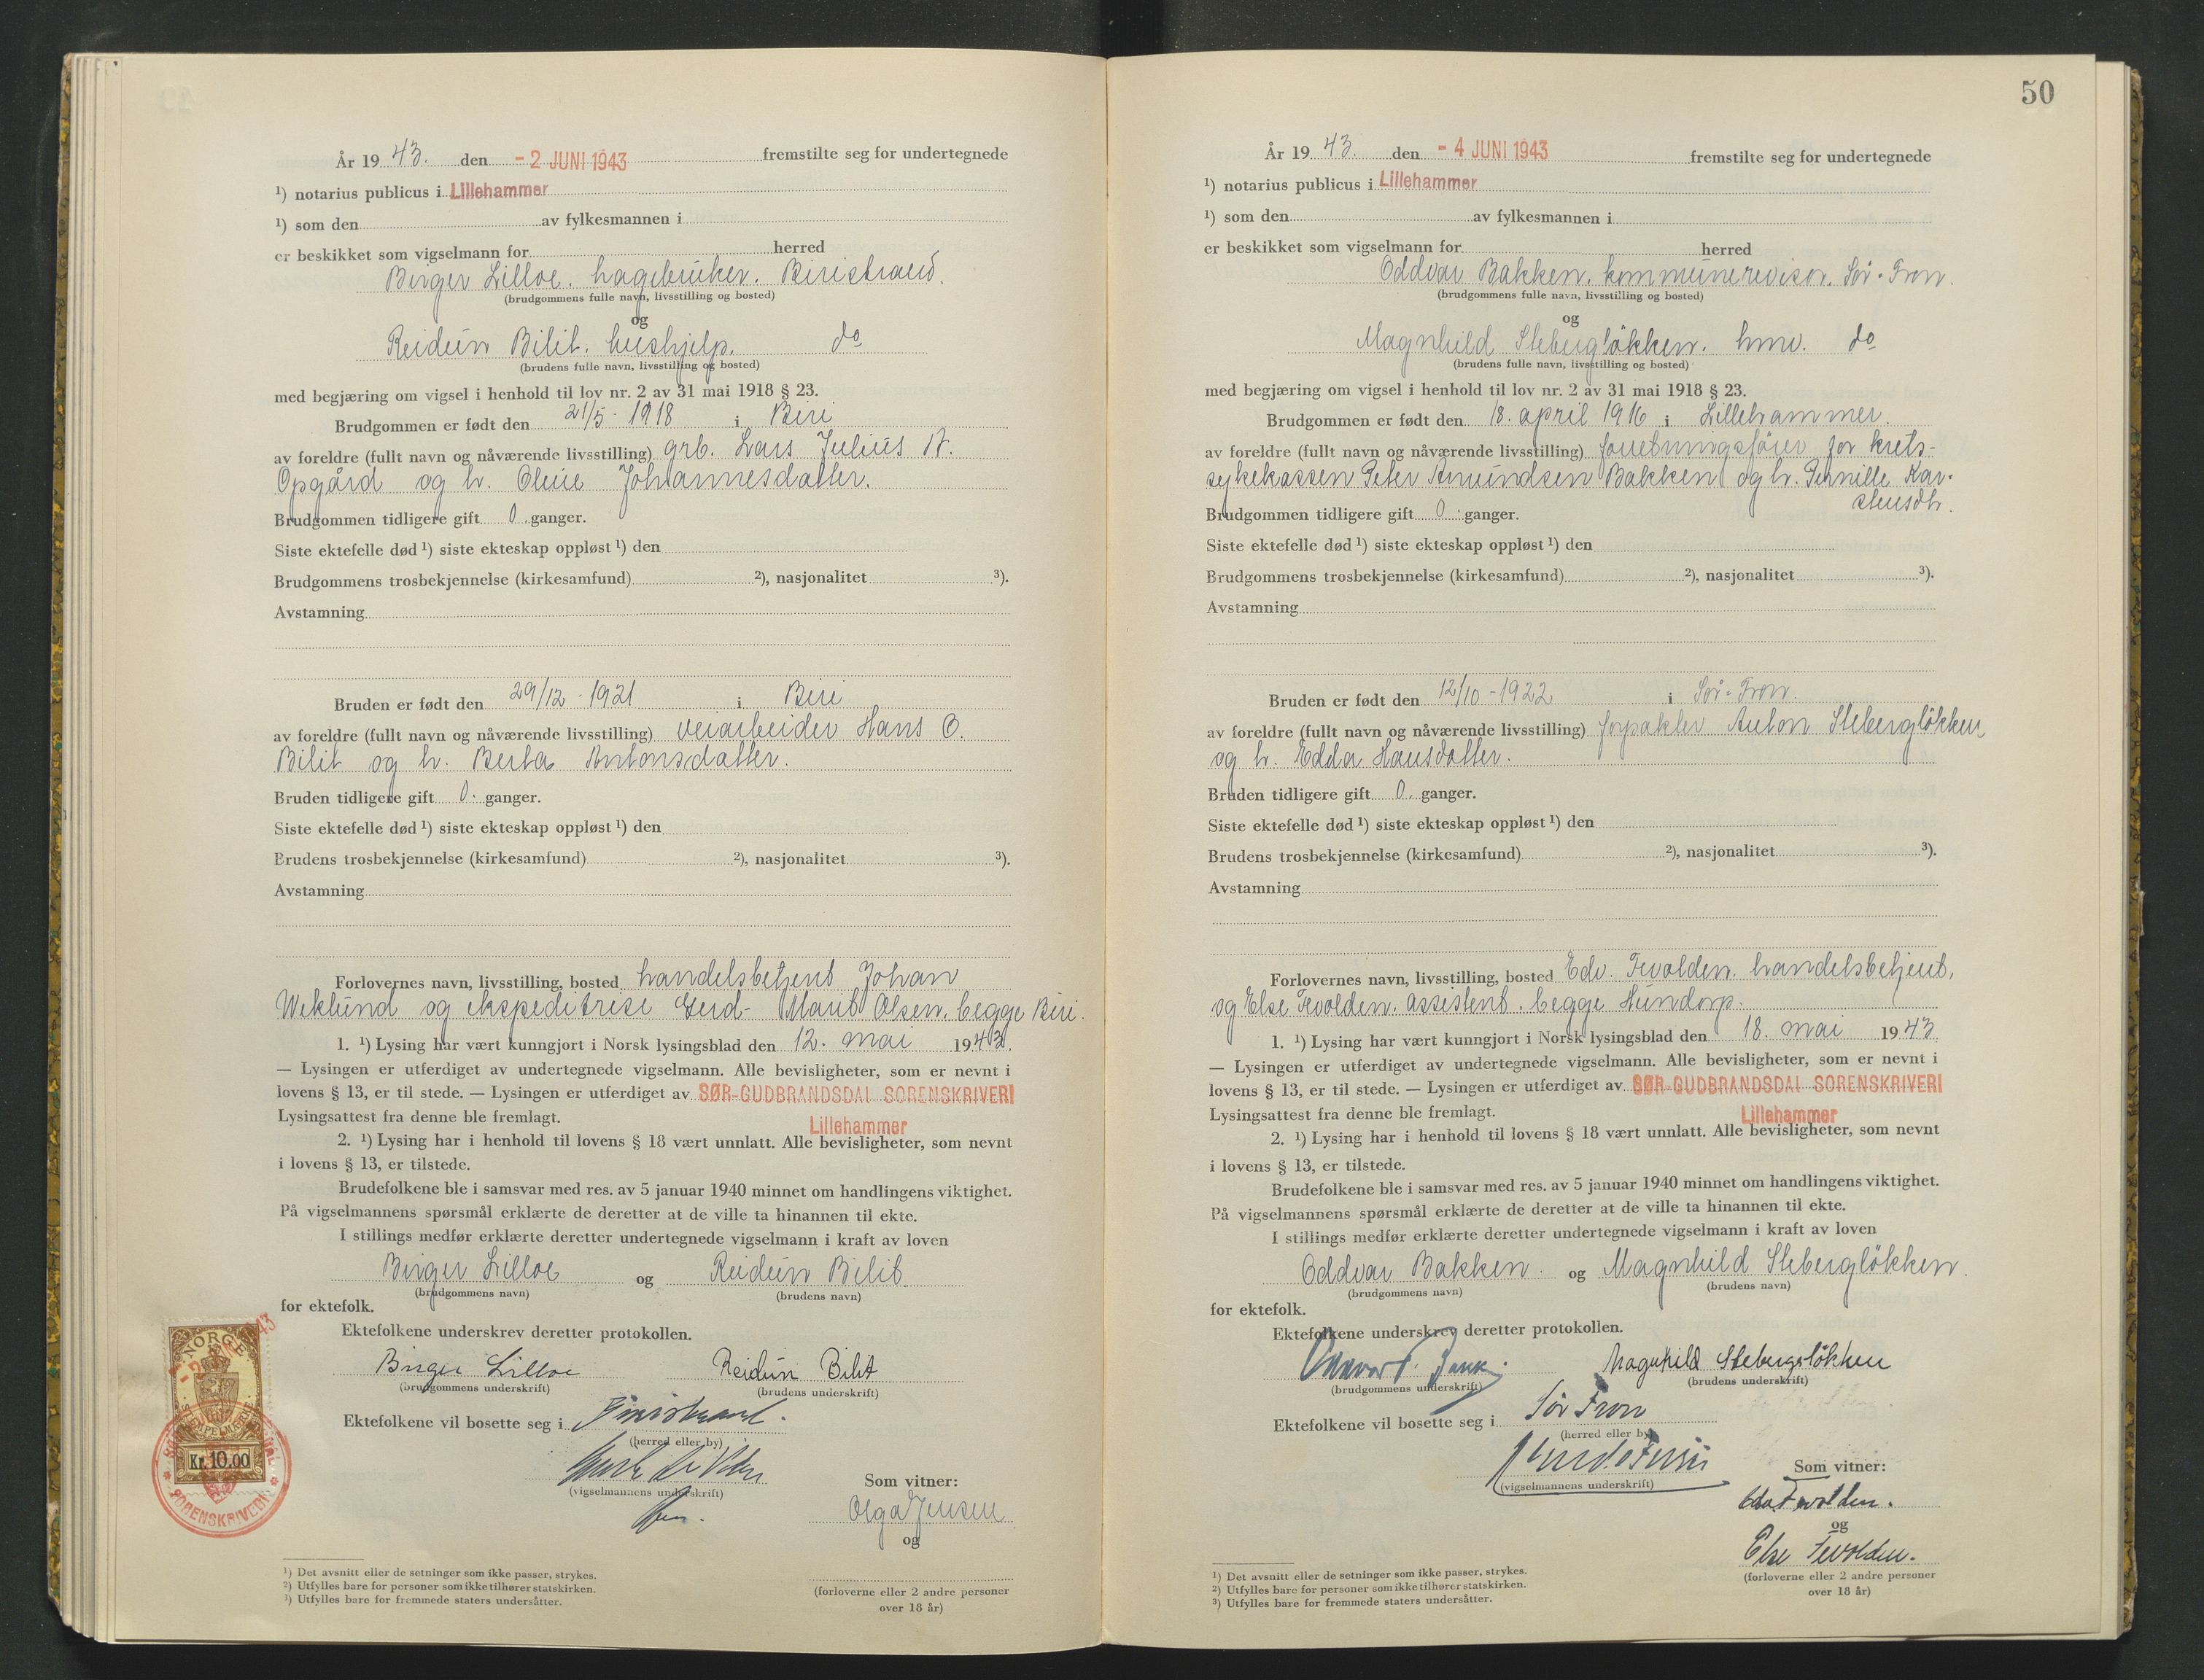 År 19 43. den - 2 JUNI 1943 fremstilte seg for undertegnede
¹) notarius publicus i Lillehammer
¹) som den av fylkesmannen i
er beskikket som vigselmann for herred
Birger Lilloe. hagebruker. Biristrand.
(brudgommens fulle navn, livsstilling og bosted)
og
Reidun Bilit. hushjelp. do
(brudens fulle navn, livsstilling og bosted)
med begjæring om vigsel i henhold til lov nr. 2 av 31 mai 1918 § 23.
Brudgommen er født den 21/5 - 1918 i Biri
av foreldre (fullt navn og nåværende livsstilling) grb. Lars Julius A.
Opgård og h. Oleue Johannesdatter.
Brudgommen tidligere gift 0. ganger.
Siste ektefelle død ¹) siste ekteskap oppløst ¹) den
Brudgommens trosbekjennelse (kirkesamfund) ²), nasjonalitet ³).
Avstamning
Bruden er født den 29/12 - 1921 i Biri
av foreldre (fullt navn og nåværende livsstilling) veiarbeider Hans O.
Bilit og h. Berta Antonsdatter.
Bruden tidligere gift 0. ganger.
Siste ektefelle død ¹) siste ekteskap oppløst ¹) den
Brudens trosbekjennelse (kirkesamfund) ²), nasjonalitet ³).
Avstamning
Forlovernes navn, livsstilling, bosted handelsbetjent Johan
Weklund og ekspeditrise Gerd- Marit Olsen. begge Biri.
1. ¹) Lysing har vært kunngjort i Norsk lysingsblad den 12. mai 1943.
— Lysingen er utferdiget av undertegnede vigselmann. Alle bevisligheter, som er nevnt i
lovens § 13, er til stede. — Lysingen er utferdiget av SØR-GUDBRANDSDAL SORENSKRIVERI
Lysingsattest fra denne ble fremlagt. Lillehammer
2. ¹) Lysing har i henhold til lovens § 18 vært unnlatt. Alle bevisligheter, som nevnt
i lovens § 13, er tilstede.
Brudefolkene ble i samsvar med res. av 5 januar 1940 minnet om handlingens viktighet.
På vigselmannens spørsmål erklærte de deretter at de ville ta hinannen til ekte.
I stillings medfør erklærte deretter undertegnede vigselmann i kraft av loven
Birger Lilloe og Reidun Bilit
(brudgommens navn) (brudens navn)
for ektefolk.
Ektefolkene underskrev deretter protokollen.
Birger Lilloe Reidun Bilit
(brudgommens underskrift) (brudens underskrift)
Ektefolkene vil bosette seg i Biristrand.
(herred eller by)
(vigselmannens underskrift)
Som vitner:
Olga Jensen
og
(forloverne eller 2 andre personer
over 18 år)
NORGE
Kr. 10.00
SORENSKRIVERI
¹) Det avsnitt eller de setninger som ikke passer, strykes.
²) Utfylles bare for personer som ikke tilhører statskirken.
³) Utfylles bare for fremmede staters undersåtter.
50
År 19 43. den - 4 JUNI 1943 fremstilte seg for undertegnede
¹) notarius publicus i Lillehammer
¹) som den av fylkesmannen i
er beskikket som vigselmann for herred
Oddvar Bakken. kommunerevisor. Sör-Fron.
(brudgommens fulle navn, livsstilling og bosted)
og
Magnhild Stebergløkken. hmv. do
(brudens fulle navn, livsstilling og bosted)
med begjæring om vigsel i henhold til lov nr. 2 av 31 mai 1918 § 23.
Brudgommen er født den 18. april 1916 i Lillehammer.
av foreldre (fullt navn og nåværende livsstilling) forretningsfører for krets-
sykekassen Peter Amundsen Bakken og h. Pernille Kar-
stensdtr.
Brudgommen tidligere gift 0. ganger.
Siste ektefelle død ¹) siste ekteskap oppløst ¹) den
Brudgommens trosbekjennelse (kirkesamfund) ²), nasjonalitet ³).
Avstamning
Bruden er født den 12/10 - 1922 i Sör-Fron.
av foreldre (fullt navn og nåværende livsstilling) forpakter Anton Steberglökken
og h. Edda Hansdatter.
Bruden tidligere gift 0. ganger.
Siste ektefelle død ¹) siste ekteskap oppløst ¹) den
Brudens trosbekjennelse (kirkesamfund) ²), nasjonalitet ³).
Avstamning
Forlovernes navn, livsstilling, bosted Edv. Fevolden. handelsbetjent,
og Else Fevolden. assistent. begge Hundorp.
1. ¹) Lysing har vært kunngjort i Norsk lysingsblad den 18. mai 1943
— Lysingen er utferdiget av undertegnede vigselmann. Alle bevisligheter, som er nevnt i
lovens § 13, er til stede. — Lysingen er utferdiget av SØR-GUDBRANDSDAL SORENSKRIVERI
Lysingsattest fra denne ble fremlagt. Lillehammer
2. ¹) Lysing har i henhold til lovens § 18 vært unnlatt. Alle bevisligheter, som nevnt
i lovens § 13, er tilstede.
Brudefolkene ble i samsvar med res. av 5 januar 1940 minnet om handlingens viktighet.
På vigselmannens spørsmål erklærte de deretter at de ville ta hinannen til ekte.
I stillings medfør erklærte deretter undertegnede vigselmann i kraft av loven
Oddvar Bakken. og Magnhild Steberglökken.
(brudgommens navn) (brudens navn)
for ektefolk.
Ektefolkene underskrev deretter protokollen.
Magnhild Steberglökken
(brudgommens underskrift) (brudens underskrift)
Ektefolkene vil bosette seg i Sör Fron
(herred eller by)
(vigselmannens underskrift)
Som vitner:
Fevolden.
og
Else Fevolden.
(forloverne eller 2 andre personer
over 18 år)
¹) Det avsnitt eller de setninger som ikke passer, strykes.
²) Utfylles bare for personer som ikke tilhører statskirken.
³) Utfylles bare for fremmede staters undersåtter.